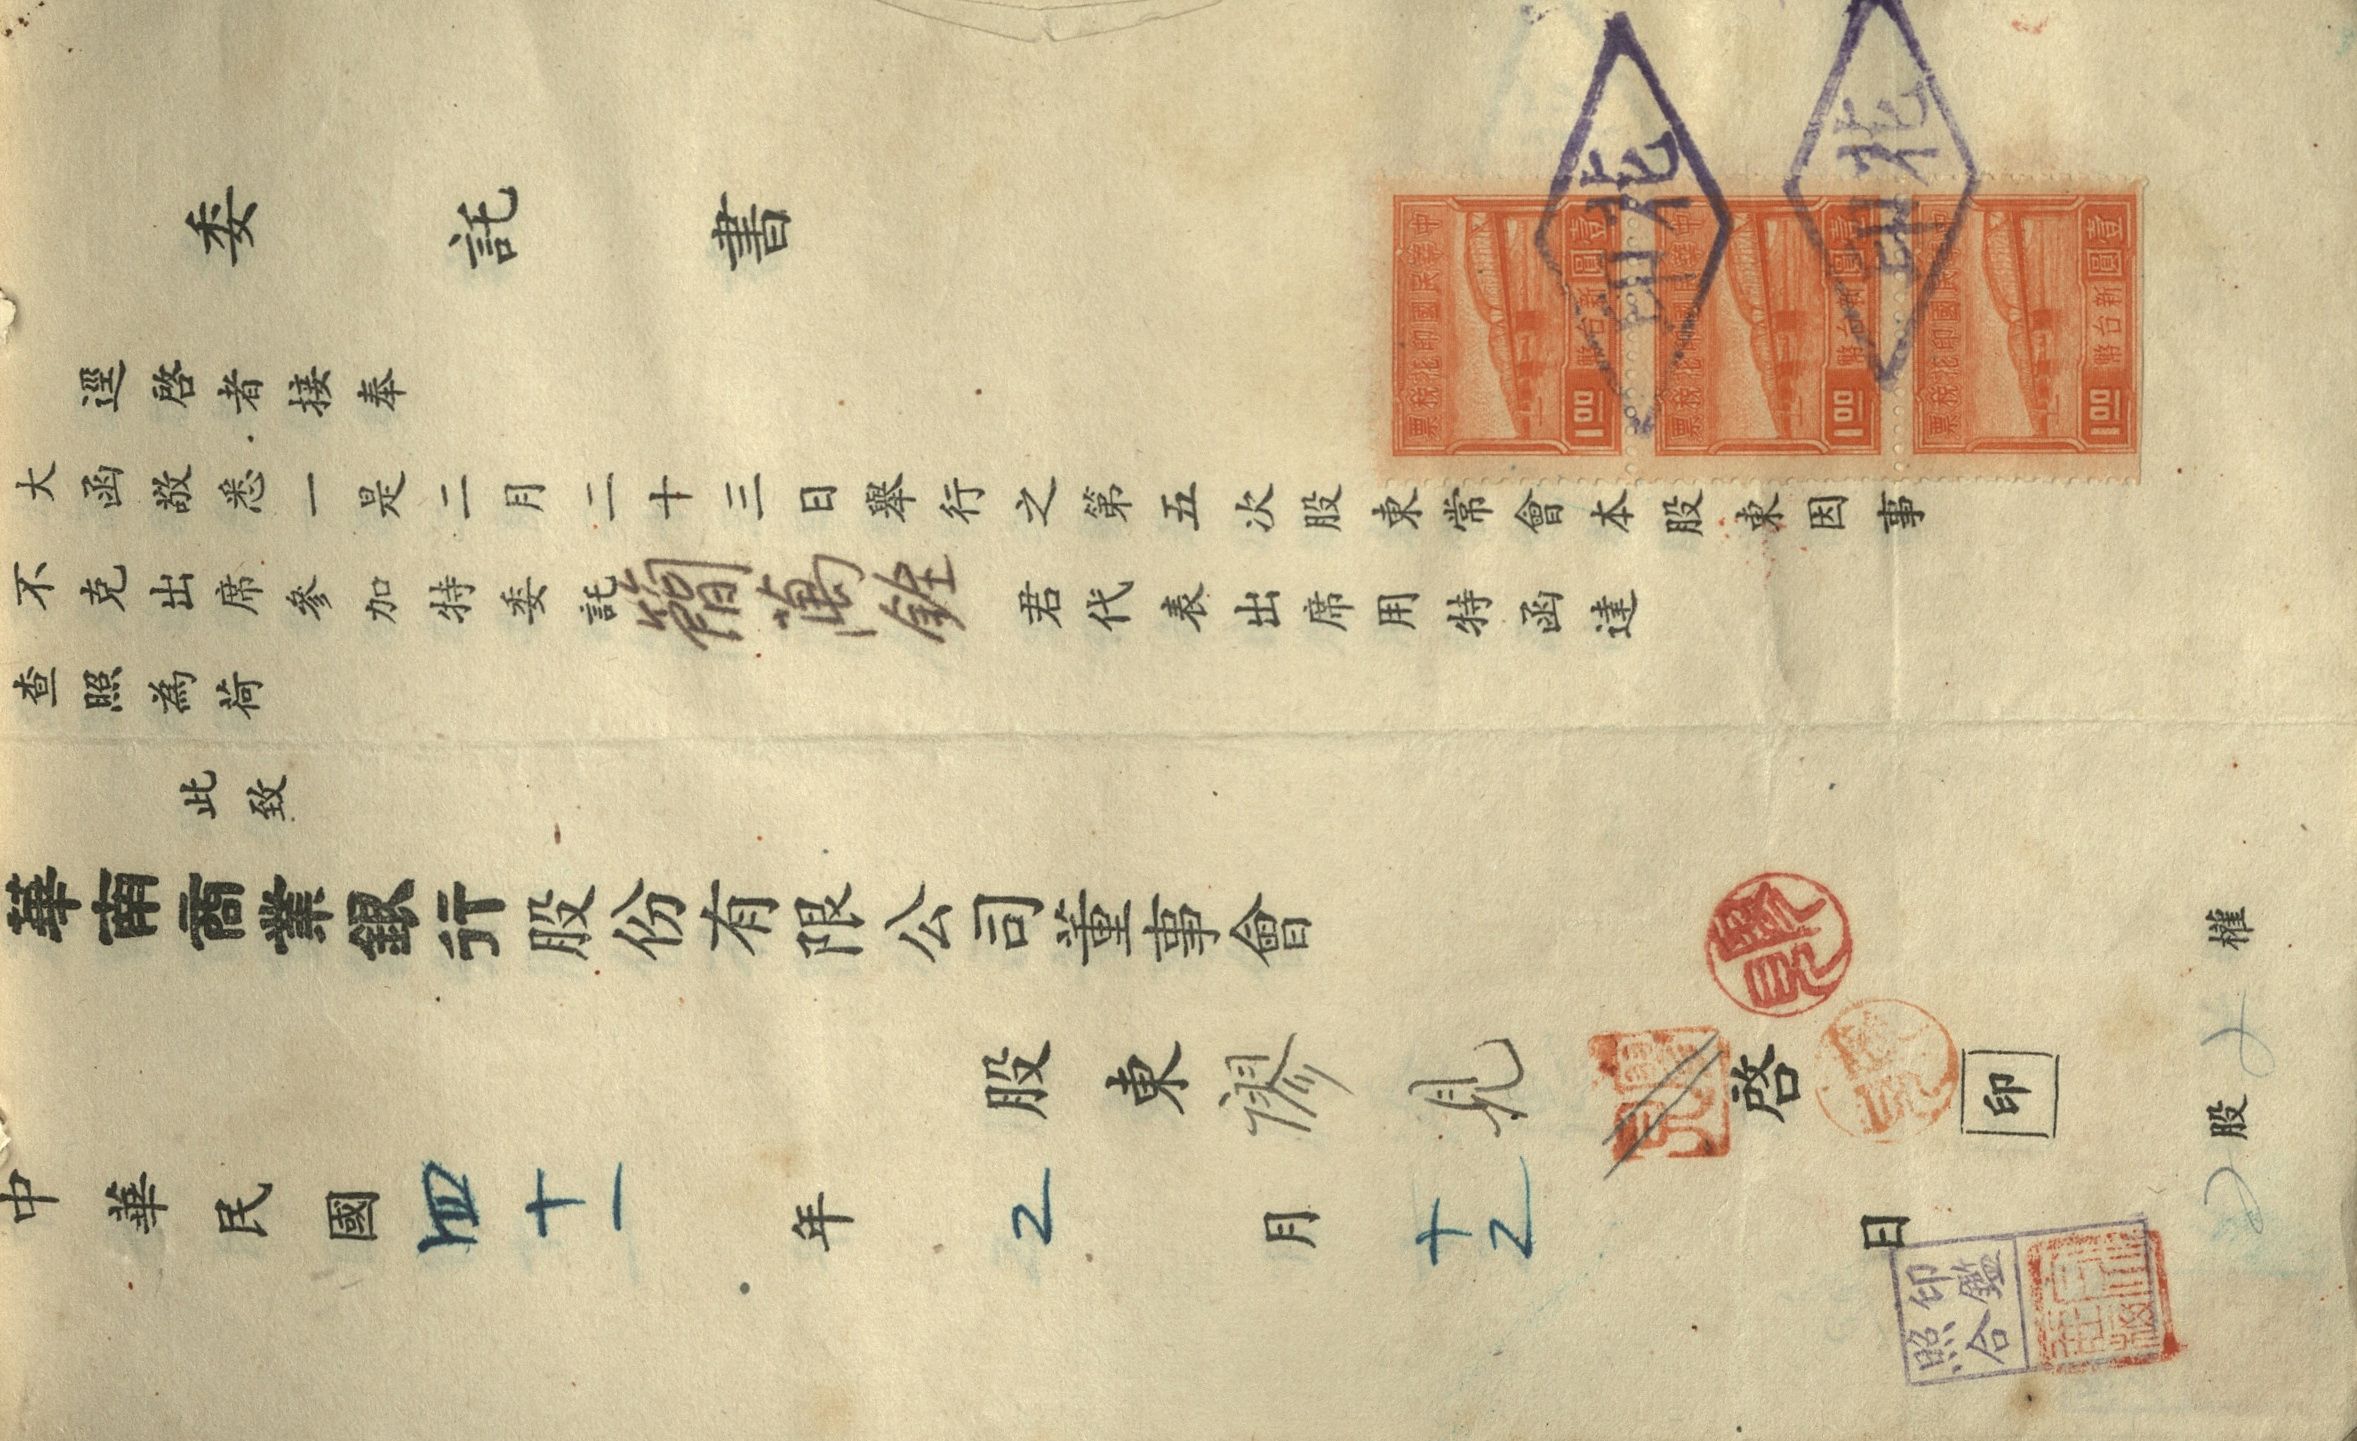 委託書
逕啓者接奉
大函敬悉一是二月二十三日舉行之第五次股東常會本股東因事
不克出席參加特委託簡萬銓君代表出席用特函達
查照為荷
此致
華南商業銀行股份有限公司董事會
股東廖見啓
印
中華民國四十一年2月十2日
2股2權
中華民國印花稅票
壹圓
新台幣
1.00
中華民國印花稅票
壹圓
新台幣
1.00
中華民國印花稅票
壹圓
新台幣
1.00
花
印
花
印
印鑑
照合